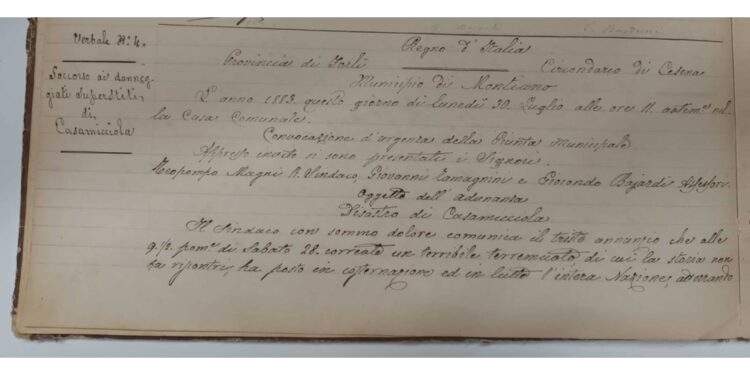 Verbale N. 4.
Soccorso ai danneg-
giati superstiti
di
Casamicciola
Regno d'Italia
Provincia di Forlì Circondario di Cesena
Municipio di Montiano
L'anno 1883. questo giorno di lunedì 30. Luglio alle ore 11. antem.e nel-
la Casa Comunale.
Convocazione d'urgenza della Giunta Municipale
Appresso invito si sono presentati i Signori.
Teopompo Magni R. Sindaco, Giovanni Zamagnini e Giocondo Bajardi Assessori.
Oggetto dell'adunanza
Disastro di Casamicciola
Il Sindaco con sommo dolore comunica il triste annunzio che alle
9.½ pom.e di Sabato 28. corrente un terribile terremuoto, di cui la storia non
ha riscontri, ha posto in costernazione ed in lutto l'intera Nazione, atterrando